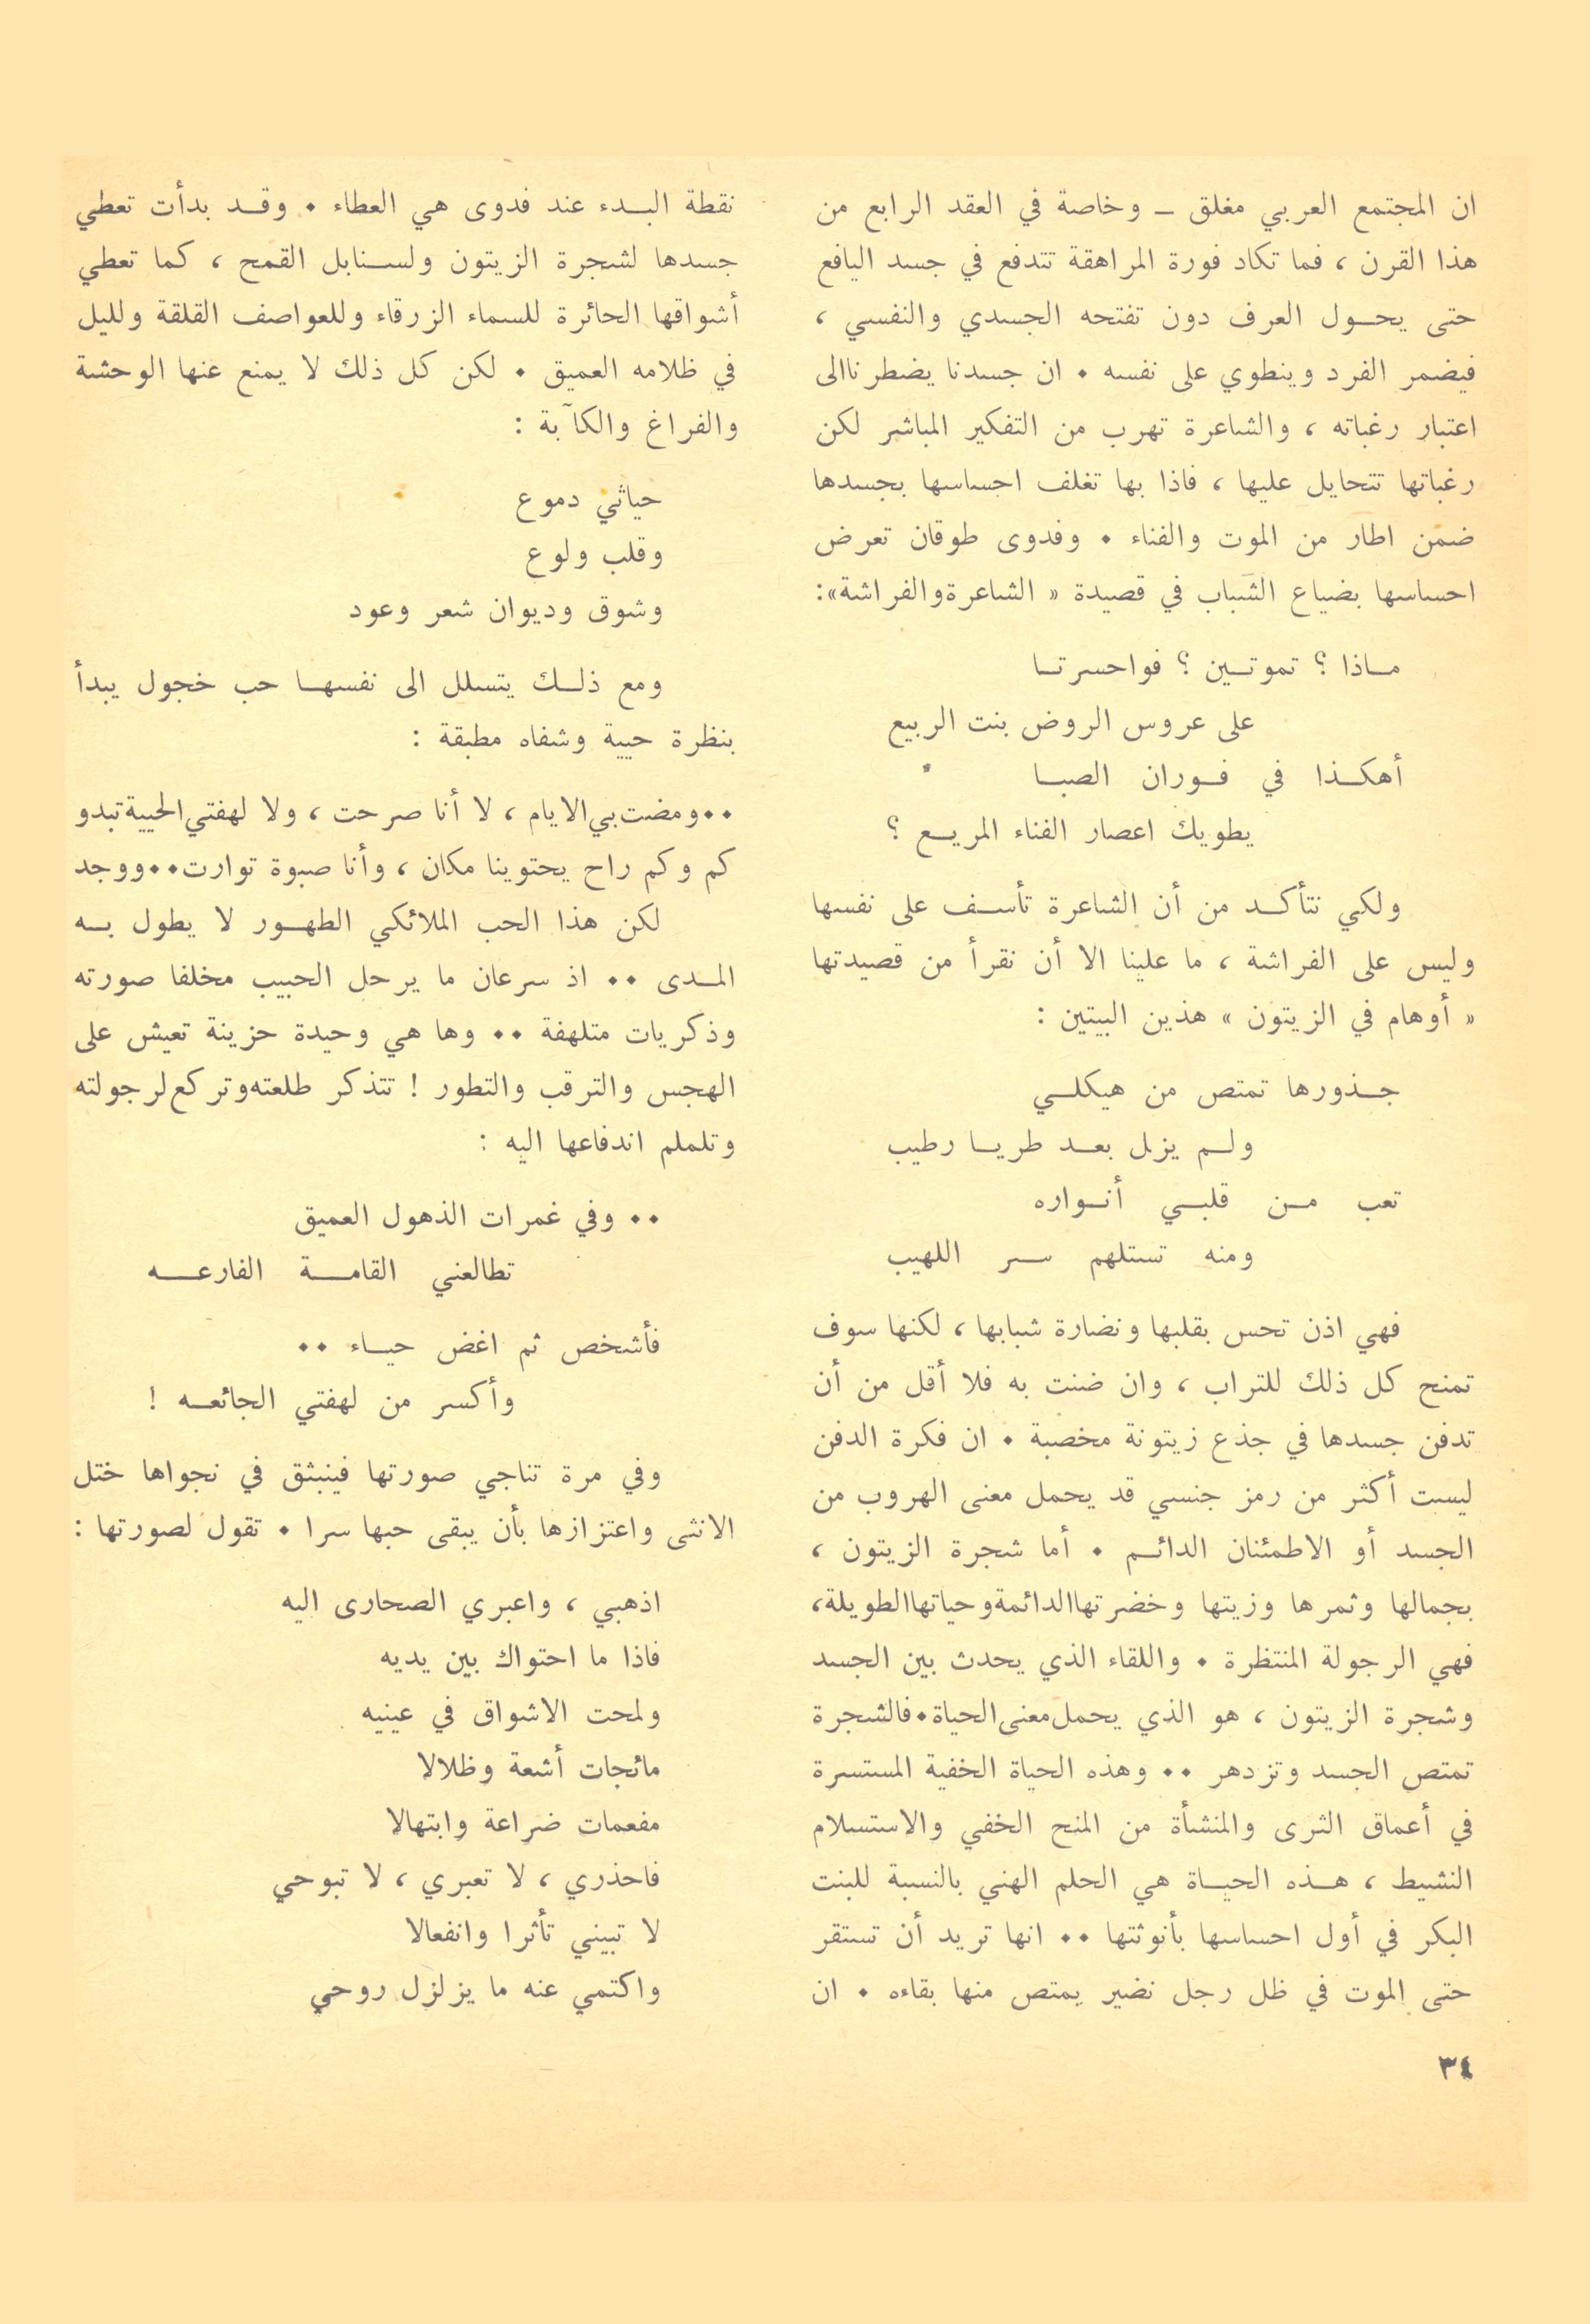 ان المجتمع العربي مغلق – وخاصة في العقد الرابع من
هذا القرن ، فما تكاد فورة المراهقة تتدفع في جسد اليافع
حتى يحول العرف دون تفتحه الجسدي والنفسي ،
فيضمر الفرد وينطوي على نفسه . ان جسدنا يضطرنا الى
اعتبار رغباته ، والشاعرة تهرب من التفكير المباشر لكن
رغباتها تتحايل عليها ، فاذا بها تغلف احساسها بجسدها
ضمن اطار من الموت والفناء . وفدوى طوقان تعرض
احساسها بضياع الشباب في قصيدة « الشاعرة والفراشة»:
ماذا ؟ تموتين ؟ فواحسرتا
على عروس الروض بنت الربيع
أهكذا في فوران الصبا
يطويك اعصار الفناء المريع ؟
ولكي نتأكد من أن الشاعرة تأسف على نفسها
وليس على الفراشة ، ما علينا الا أن نقرأ من قصيدتها
« أوهام في الزيتون » هذين البيتين :
جذورها تمتص من هيكلي
ولم يزل بعد طريا رطيب
تعب من قلبي أنواره
ومنه تستلهم سر اللهيب
فهي اذن تحس بقلبها ونضارة شبابها ، لكنها سوف
تمنح كل ذلك للتراب ، وان ضنت به فلا أقل من أن
تدفن جسدها في جذع زيتونة مخصبة . ان فكرة الدفن
ليست أكثر من رمز جنسي قد يحمل معنى الهروب من
الجسد أو الاطمئنان الدائم . أما شجرة الزيتون ،
بجمالها وثمرها وزيتها وخضرتها الدائمة وحياتها الطويلة،
فهي الرجولة المنتظرة . واللقاء الذي يحدث بين الجسد
وشجرة الزيتون ، هو الذي يحمل معنى الحياة . فالشجرة
تمتص الجسد وتزدهر .. وهذه الحياة الخفية المستسرة
في أعماق الثرى والمنشأة من المنح الخفي والاستسلام
النشيط ، هذه الحياة هي الحلم الهني بالنسبة للبنت
البكر في أول احساسها بأنوثتها .. انها تريد أن تستقر
حتى الموت في ظل رجل نضير يمتص منها بقاءه . ان
نقطة البدء عند فدوى هي العطاء . وقد بدأت تعطي
جسدها لشجرة الزيتون ولسنابل القمح ، كما تعطي
أشواقها الحائرة للسماء الزرقاء وللعواصف القلقة ولليل
في ظلامه العميق . لكن كل ذلك لا يمنع عنها الوحشة
والفراغ والكآبة :
حياتي دموع
وقلب ولوع
وشوق وديوان شعر وعود
ومع ذلك يتسلل الى نفسها حب خجول يبدأ
بنظرة حيية وشفاه مطبقة :
.. ومضت بي الايام ، لا أنا صرحت ، ولا لهفتي الحيية تبدو
كم وكم راح يحتوينا مكان ، وأنا صبوة توارت .. ووجد
لكن هذا الحب الملائكي الطهور لا يطول به
المدى .. اذ سرعان ما يرحل الحبيب مخلفا صورته
وذكريات متلهفة .. وها هي وحيدة حزينة تعيش على
الهجس والترقب والتطور ! تتذكر طلعته وتركع لرجولته
وتلملم اندفاعها اليه :
.. وفي غمرات الذهول العميق
تطالعني القامة الفارعه
فأشخص ثم اغض حياء ..
وأكسر من لهفتي الجائعه !
وفي مرة تناجي صورتها فينبثق في نجواها ختل
الانثى واعتزازها بأن يبقى حبها سرا . تقول لصورتها :
اذهبي ، واعبري الصحارى اليه
فاذا ما احتواك بين يديه
ولمحت الاشواق في عينيه
مائجات أشعة وظلالا
مفعمات ضراعة وابتهالا
فاحذري ، لا تعبري ، لا تبوحي
لا تبيني تأثرا وانفعالا
واكتمي عنه ما يزلزل روحي
٣٤